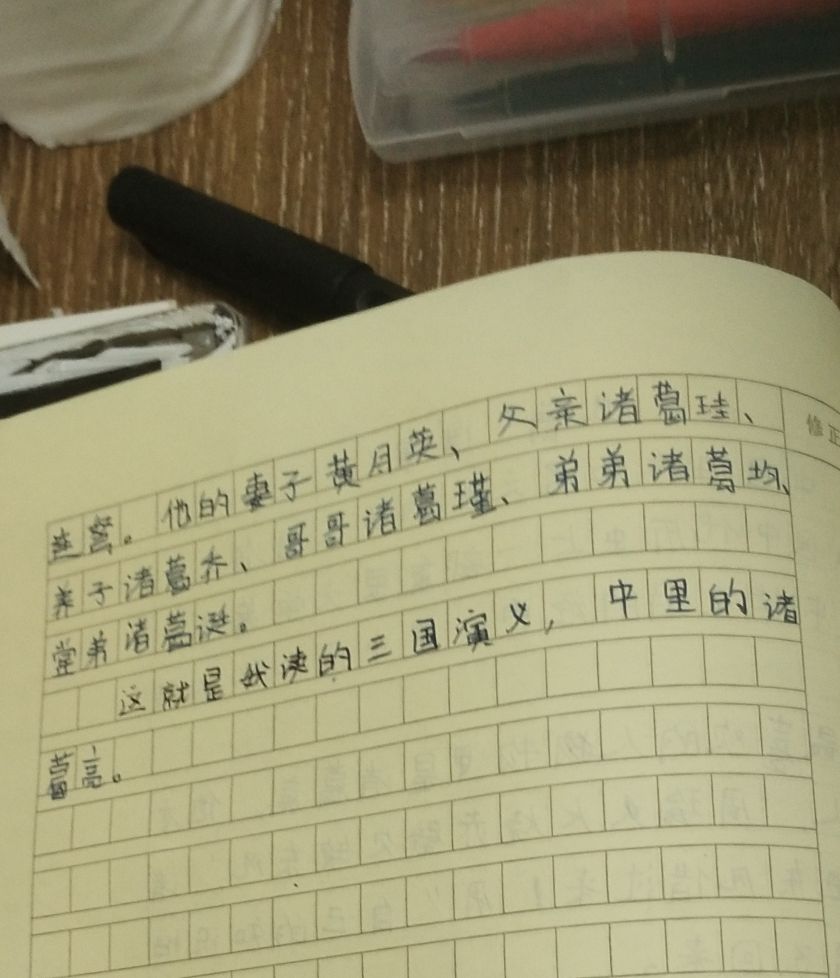 连弩。他的妻子黄月英、父亲诸葛珪、
养子诸葛乔、哥哥诸葛瑾、弟弟诸葛均、
堂弟诸葛诞。
这就是我读的三国演义，中里的诸
葛亮。
修正